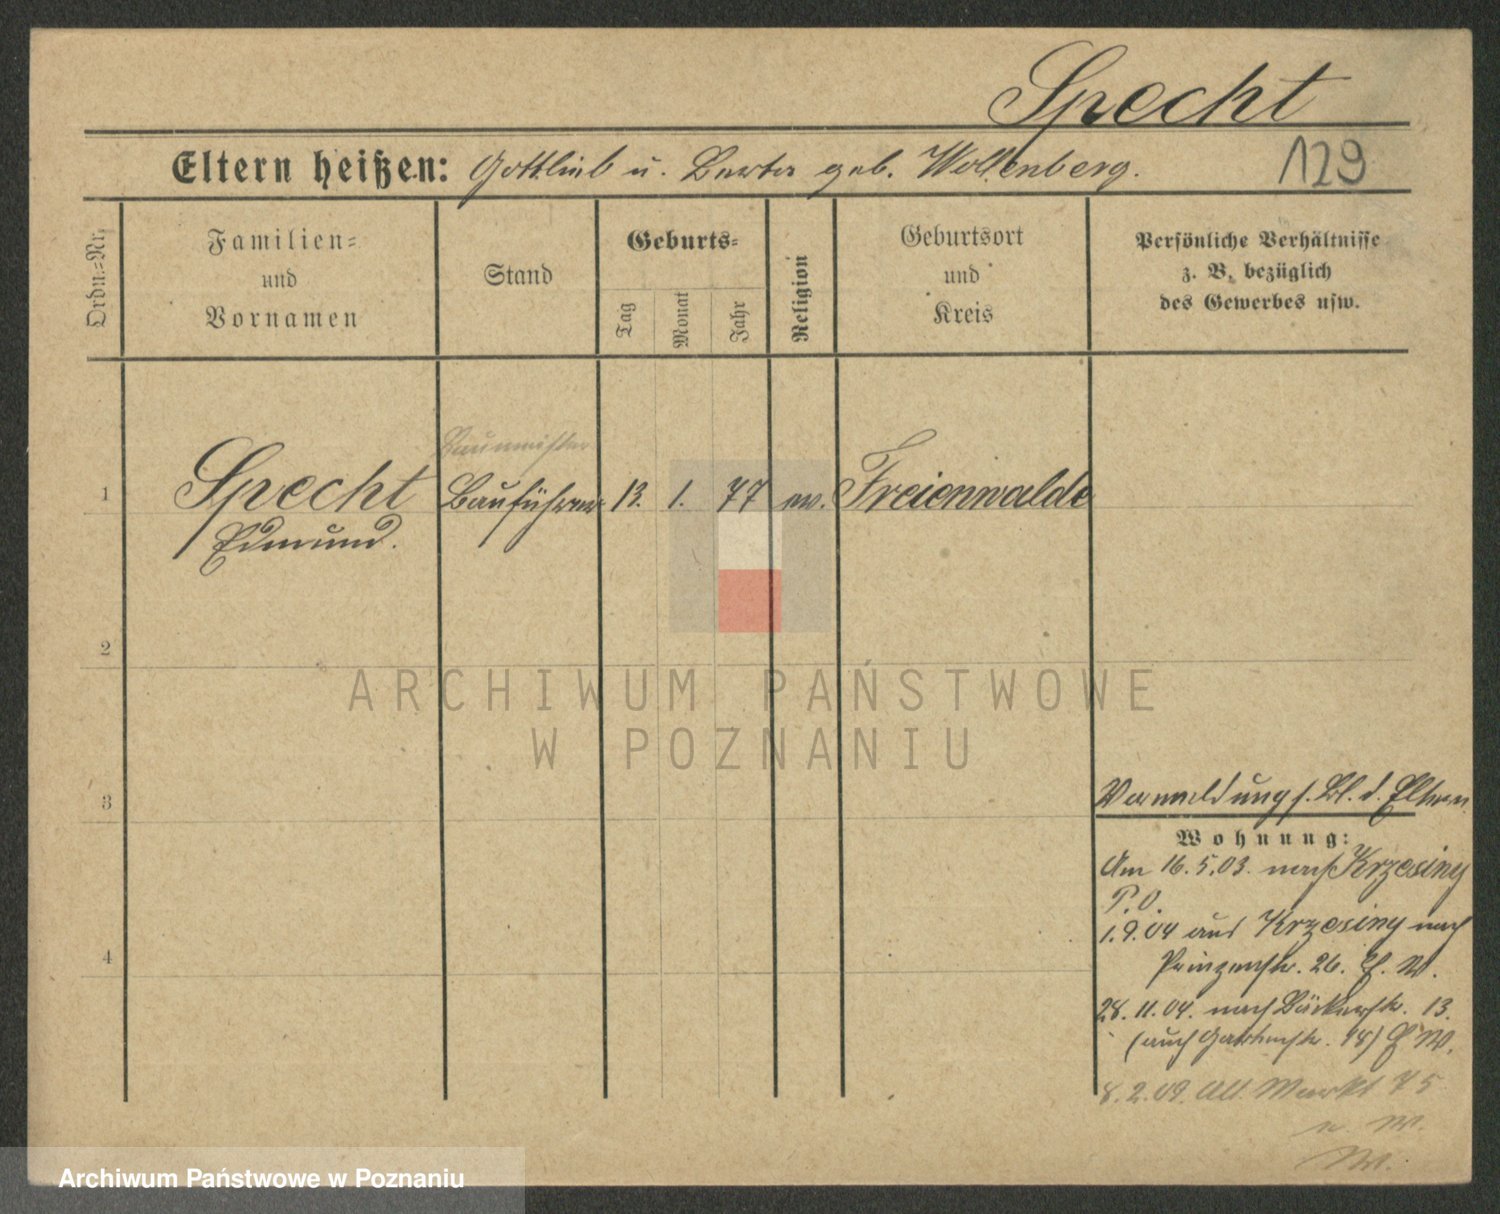 Specht
Eltern heißen: Gottlieb u. Berta geb. Wollenberg.
129
Ordn.-Nr.
Familien-
und
Vornamen
Stand
Geburts-
Tag
Monat
Jahr
Religion
Geburtsort
und
Kreis
Persönliche Verhältnisse
z. B. bezüglich
des Gewerbes usw.
Baumeister
1 Specht Bauführer 13. 1. 77 ev. Freienwalde
Edmund.
2
ARCHIWUM PAŃSTWOWE
W POZNANIU
3
Vormeldung s. Bl. d. Eltern
Wohnung:
Am 16.5.03. nach Krzesiny
P.O.
1.9.04 aus Krzesiny nach
4
Prinzenstr. 26. E. W.
28.11.04. nach Bäckerstr. 13.
(auch Gartenstr. 18) E W.
8.2.09. Alt. Markt 75
W.
Archiwum Państwowe w Poznaniu